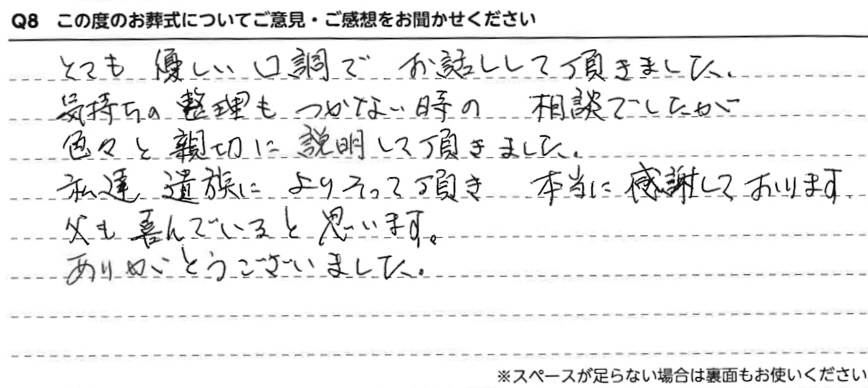 Q8 この度のお葬式についてご意見・ご感想をお聞かせください
とても 優しい口調で お話しして頂きました。
気持ちの整理も つかない時の 相談でしたが
色々と親切に説明して頂きました。
私達 遺族に よりそって頂き 本当に感謝しております
父も喜んでいると思います。
ありがとうございました。
※スペースが足らない場合は裏面もお使いください